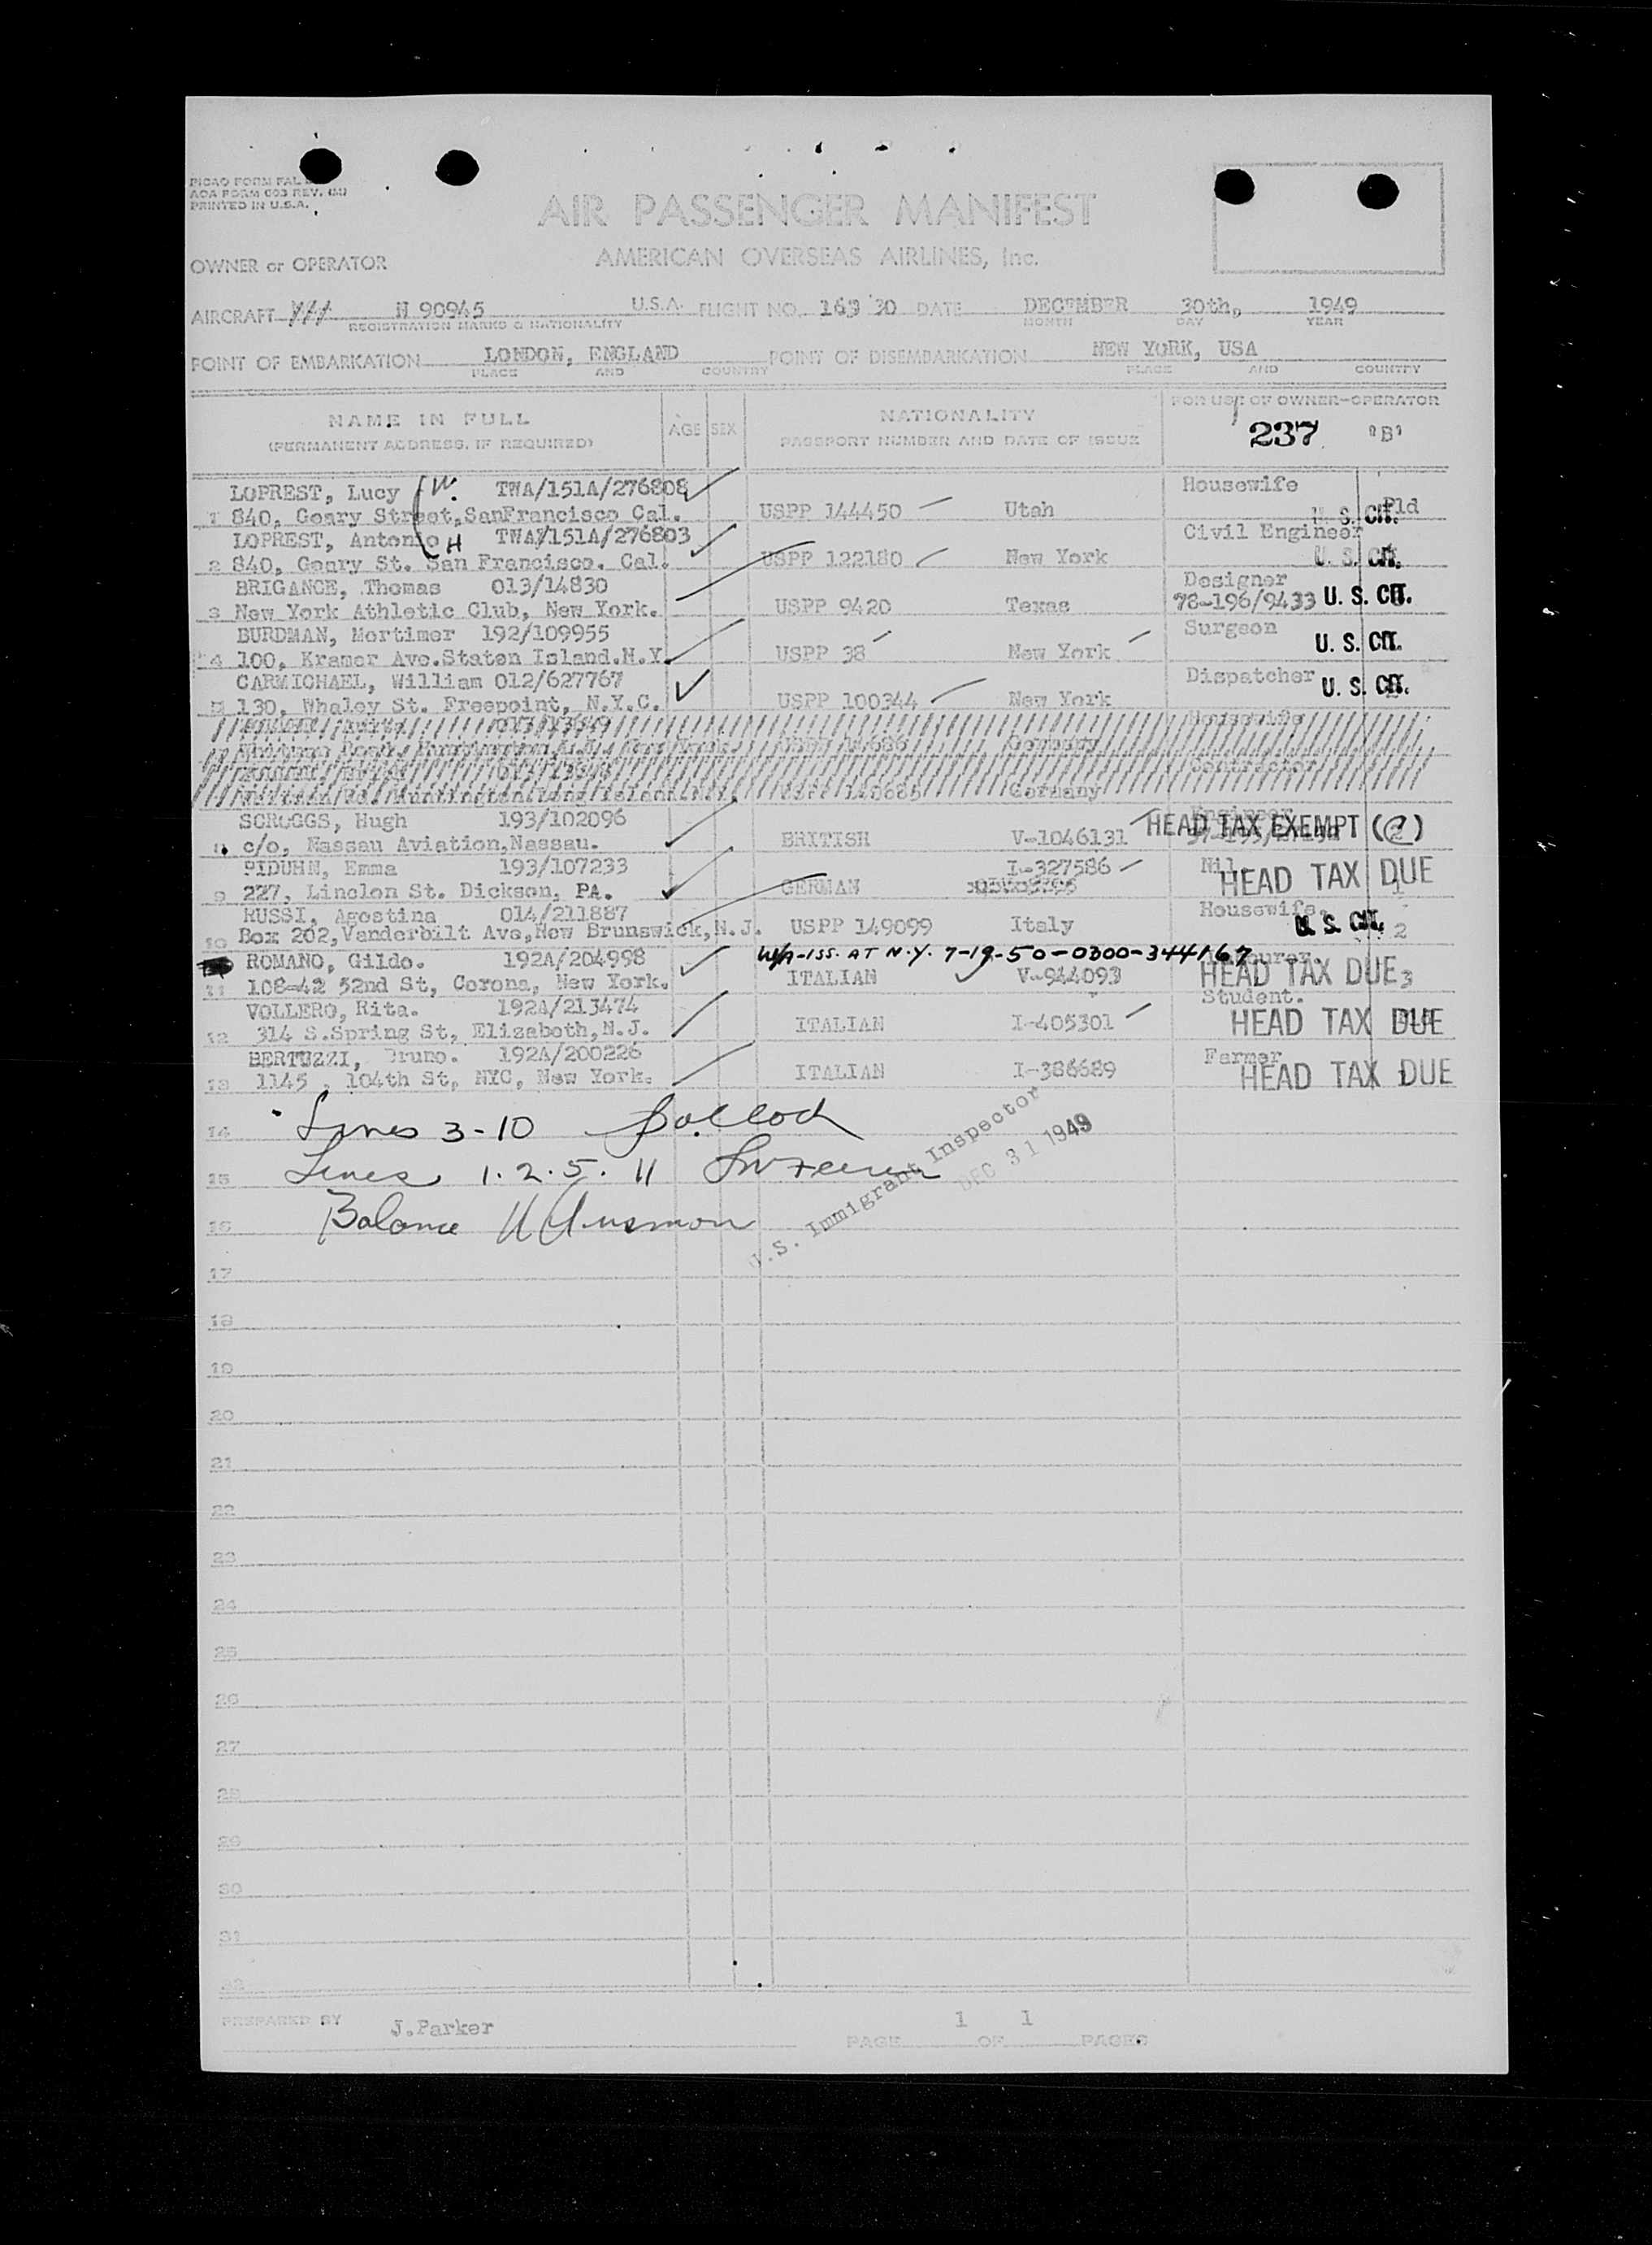 PICAO FORM FAL
AOA FORM 603 REV.
PRINTED IN U.S.A.
AIR PASSENGER MANIFEST
OWNER or OPERATOR AMERICAN OVERSEAS AIRLINES, Inc.
AIRCRAFT N 90945 U.S.A. FLIGHT NO. 30 DATE DECEMBER 30th, 1949
REGISTRATION MARKS & NATIONALITY MONTH DAY YEAR
POINT OF EMBARKATION LONDON, ENGLAND POINT OF DISEMBARKATION NEW YORK, USA
PLACE AND COUNTRY PLACE AND COUNTRY
NAME IN FULL AGE SEX NATIONALITY FOR USE OF OWNER-OPERATOR
(PERMANENT ADDRESS, IF REQUIRED) PASSPORT NUMBER AND DATE OF ISSUE 237 "B"
LOPREST, Lucy W. TWA/151A/276808 Housewife
1 840, Geary Street, SanFrancisco Cal. USPP 144450 Utah U. S. CIT.
LOPREST, Antonio H TWA/151A/276803 Civil Engineer
2 840, Geary St. San Francisco. Cal. USPP 122180 New York U. S. CIT.
BRIGANCE, Thomas 013/14830 Designer
3 New York Athletic Club, New York. USPP 9420 Texas 78-196/9433 U. S. CIT.
BURDMAN, Mortimer 192/109955 Surgeon
4 100, Kramer Ave.Staten Island.N.Y. USPP 38 New York U. S. CIT.
CARMICHAEL, William 012/627767 Dispatcher
5 130, Whaley St. Freepoint, N.Y.C. USPP 100344 New York U. S. CIT.
013/13949 Housewife
Germany
Contractor
Germany
SCROGGS, Hugh 193/102096 Engineer
c/o, Nassau Aviation,Nassau. BRITISH V-1046131 HEAD TAX EXEMPT
PIDUHN, Emma 193/107233 I-327586 Nil.
9 227, Linclon St. Dickson, PA. GERMAN HEAD TAX DUE
RUSSI, Agostina 014/211887 Housewife.
10 Box 202,Vanderbilt Ave,New Brunswick,N.J. USPP 149099 Italy U. S. CIT. 2
ROMANO, Gildo. 192A/204998 W/A-ISS. AT N.Y. 7-19-50-0300-344167
11 108-42 52nd St, Corona, New York. ITALIAN V-944093 HEAD TAX DUE 3
VOLLERO, Rita. 192A/213474 Student.
12 314 S.Spring St, Elizabeth,N.J. ITALIAN I-405301 HEAD TAX DUE
BERTUZZI, Bruno. 192A/200226 Farmer
13 1145 , 104th St, NYC, New York. ITALIAN I-386689 HEAD TAX DUE
14 Lines 3-10
15 Lines 1.2.5.11
16 Balance
U.S. Immigrant Inspector
DEC 31 1949
17
18
19
20
21
22
23
24
25
26
27
28
29
30
31
32
PREPARED BY J.Parker PAGE 1 OF 1 PAGES